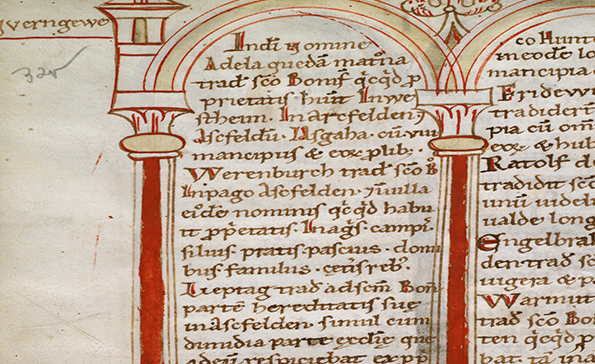 yverngewe
32v
In dī nomine
Adela quedam matrna
trad sc̄o Bonif qcqd p
prietatis huit In we
stheim. In asefelden.
Asefeldun. Asgaha. cū viii
mancipiis & eoȝ plib.
Werenburch trad sc̄o B
In pago Asefelden. In uilla
eide nominis qcqd habu
it pprietatis. In agis. campis
siluis pratis pascuis. domi
bus familiis. cetis reb.
Lieptag trad ad scm̄ Bon
parte hereditatis sue
in asefelden. simul cum
dimidia parte ecclie que
ibidem respiciebat ex pp
co Hunto
in eode lo
mancipia
Frideuu
tradider
pia cū om
eoȝ & hub
Ratolf de
tradidit sc̄o
unū uidela
ualde long
Engelbra
den trad sc̄o
iugera & p
Warmut
trad sc̄o Bo
ten qcqd p
bat tā in